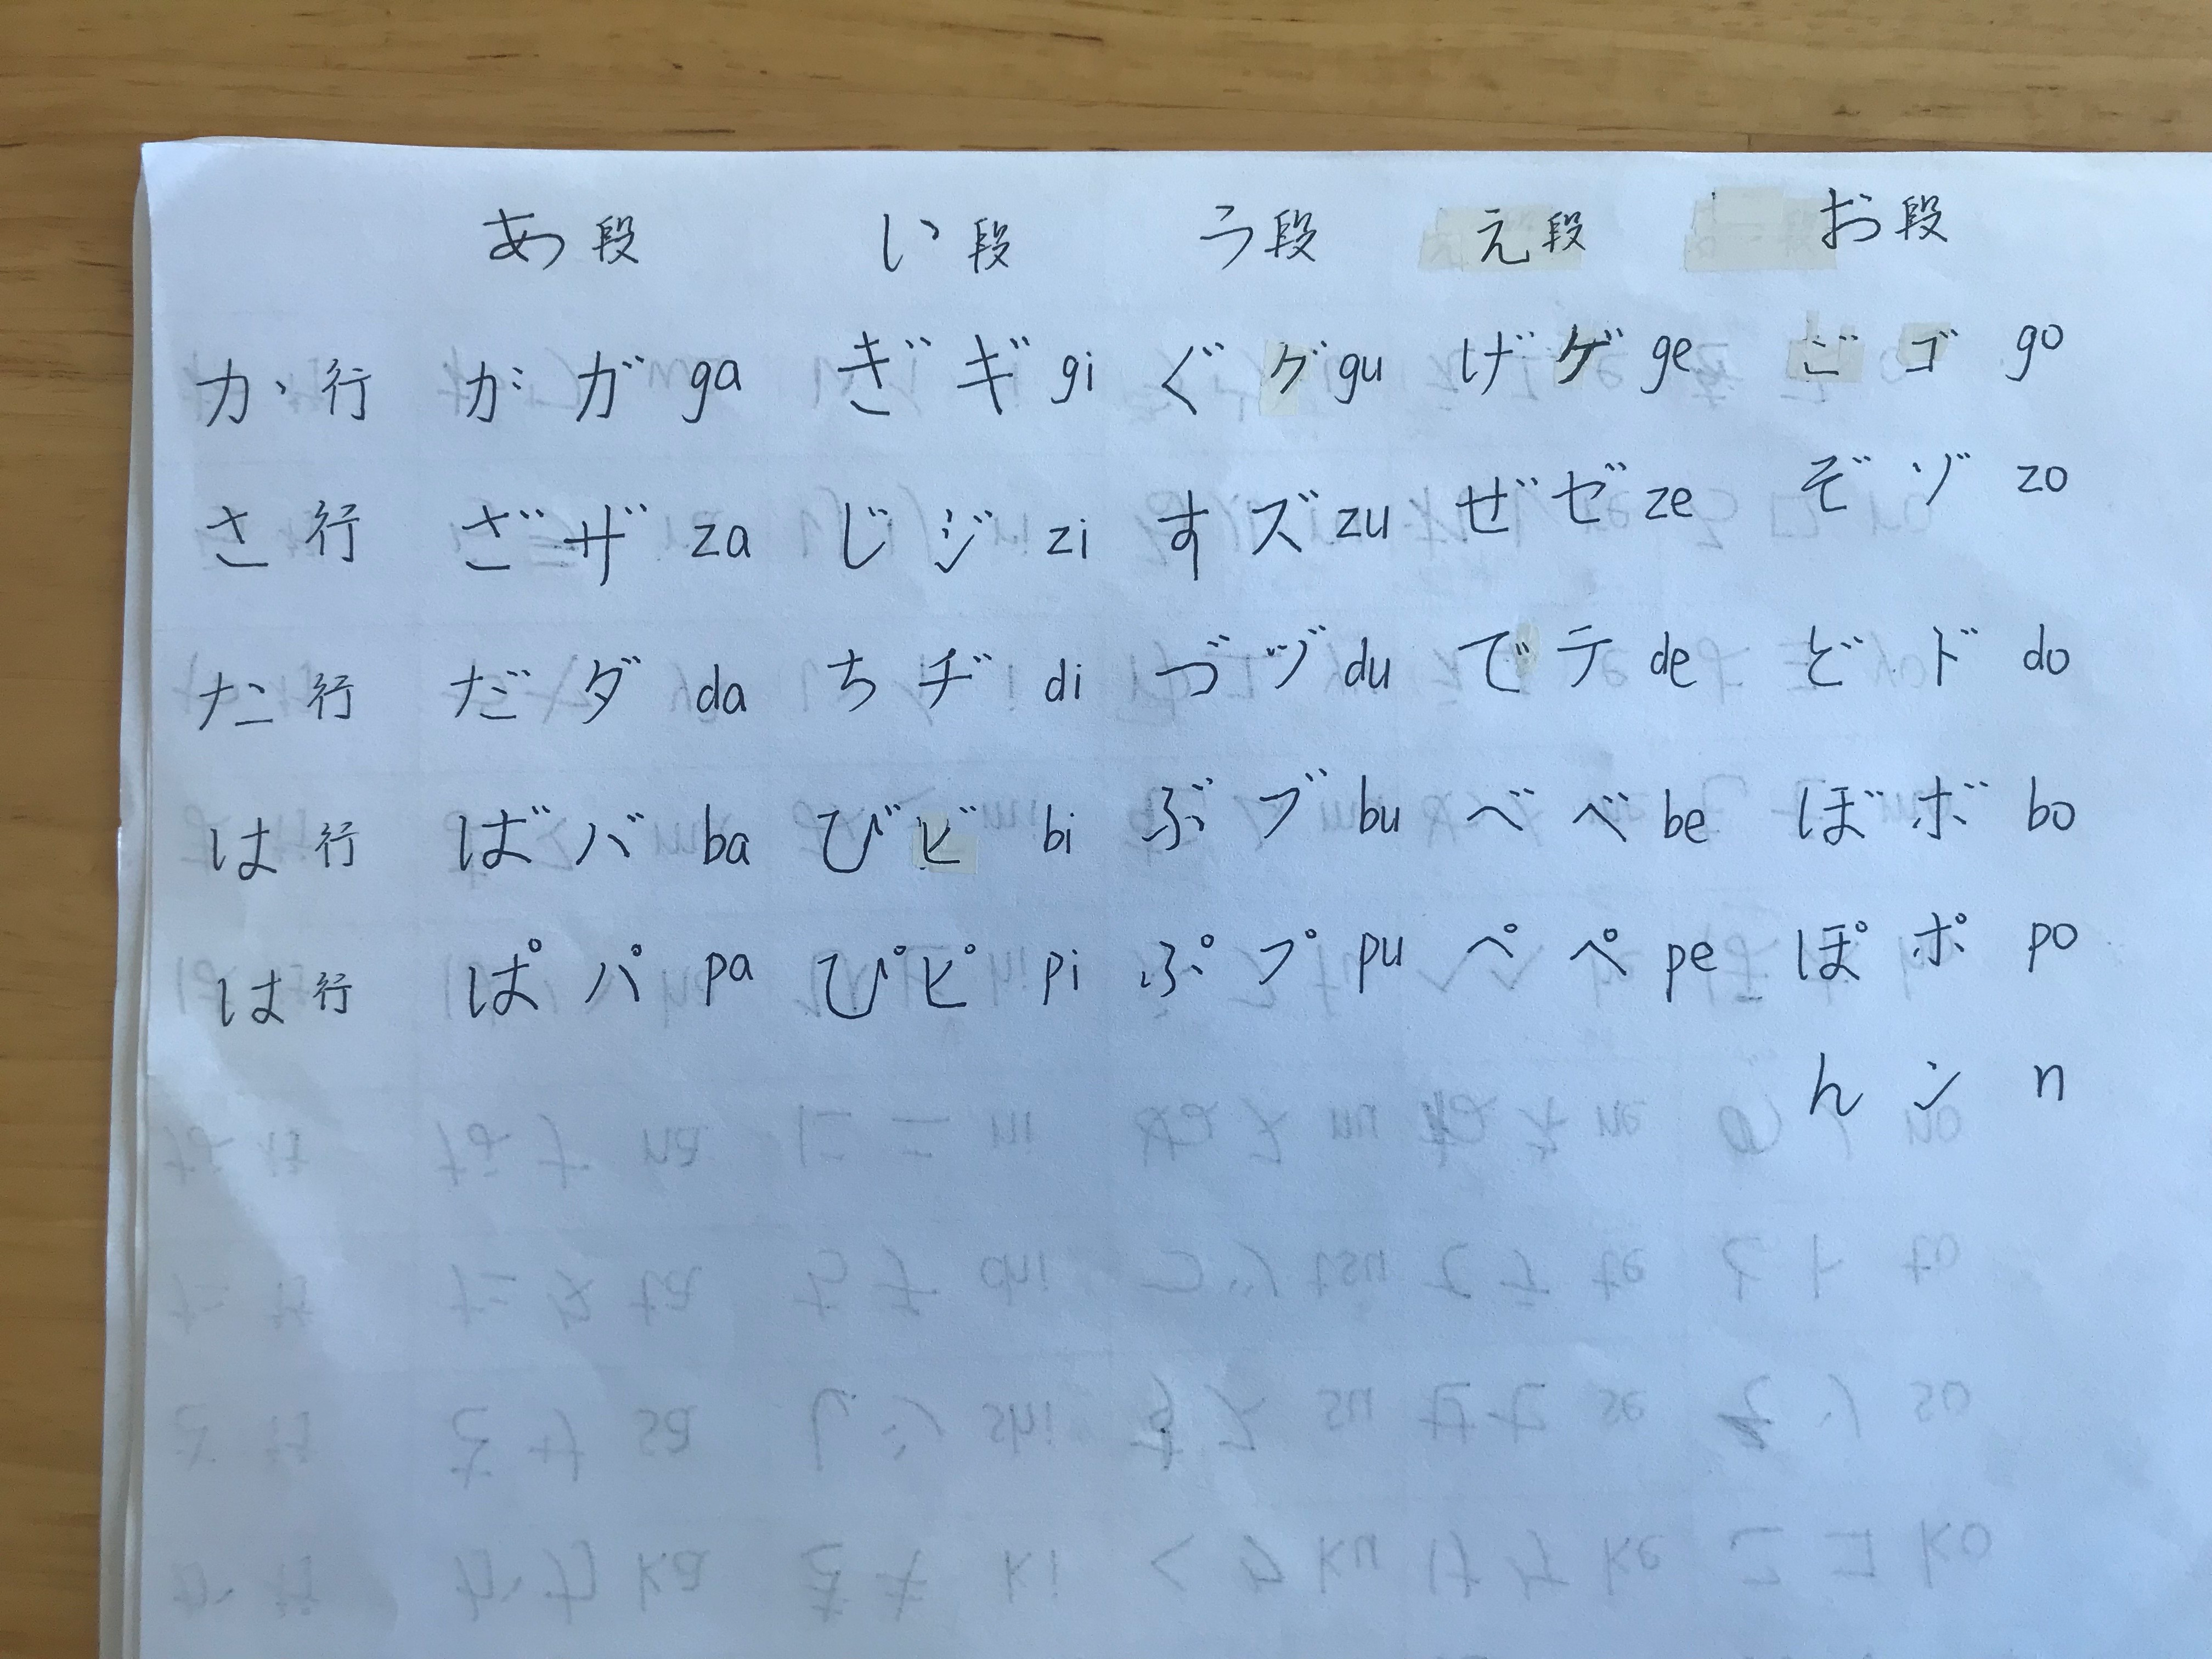 あ段 い段 う段 え段 お段
か行 が ガ ga ぎ ギ gi ぐ グ gu げ ゲ ge ご ゴ go
さ行 ざ ザ za じ ジ zi す ズ zu ぜ ゼ ze ぞ ゾ zo
た行 だ ダ da ち ヂ di づ ヅ du で テ de ど ド do
は行 ば バ ba び ビ bi ぶ ブ bu べ ベ be ぼ ボ bo
は行 ぱ パ pa ぴ ピ pi ぷ プ pu ぺ ペ pe ぽ ポ po
ん ン n